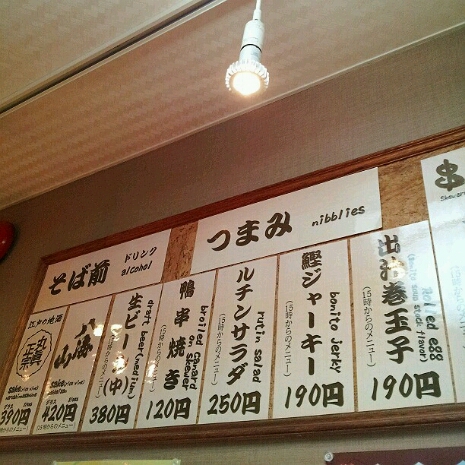 そば前
ドリンク
alcohol
つまみ
nibblies
串
江戸の地酒
390円
八海山
グラス
420円
生ビール(中)
draft beer(medium)
380円
鴨串焼き
broiled canard on skewer
(15時からのメニュー)
120円
ルチンサラダ
rutin salad
(15時からのメニュー)
250円
鰹ジャーキー
bonito jerky
(15時からのメニュー)
190円
出汁巻玉子
Rolled egg
(15時からのメニュー)
190円